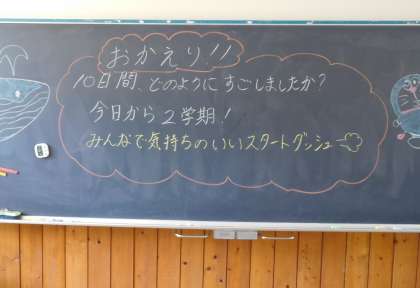 おかえり!!
10日間、どのようにすごしましたか?
今日から2学期!
みんなで気持ちのいいスタートダッシュ